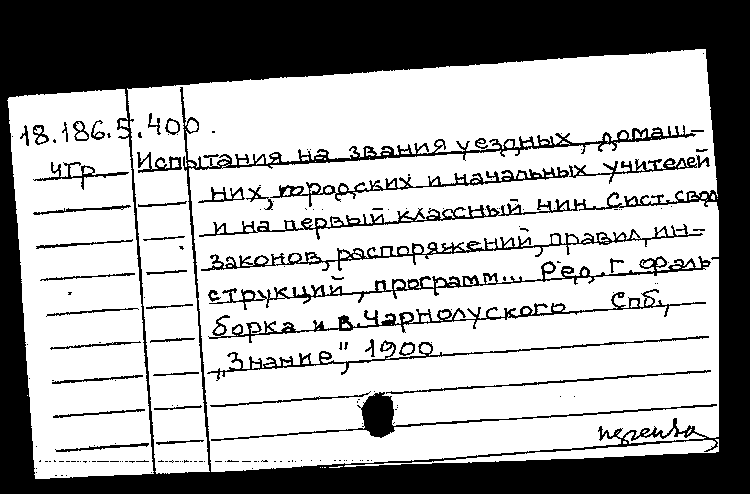 18.186.5.400.
чтр. Испытания на звания уездных, домаш-
них, городских и начальных учителей
и на первый классный чин. Сист. свод
законов, распоряжений, правил, ин-
струкций, программ... Ред. Г. Фаль-
борка и В. Чарнолуского. Спб.,
„Знание", 1900.